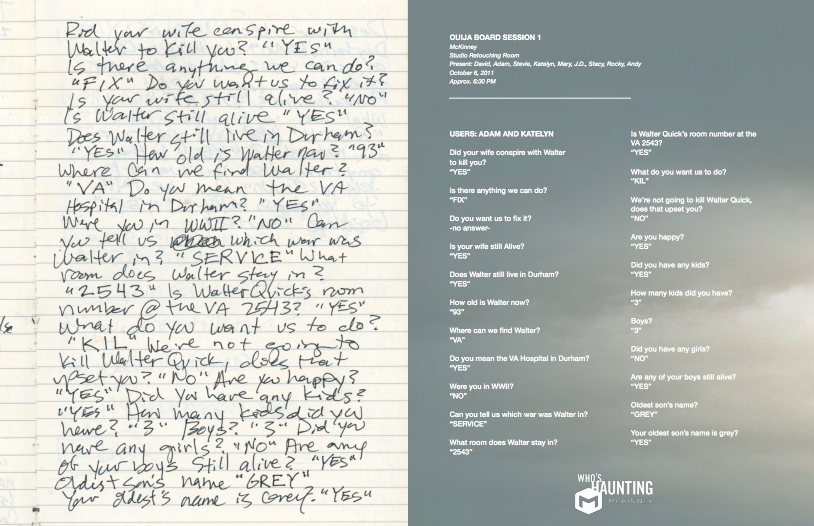 Did your wife conspire with
Walter to Kill you? "YES"
Is there anything we can do?
"FIX" Do you want us to fix it?
Is your wife still alive? "NO"
Is Walter still alive "YES"
Does Walter still live in Durham?
"YES" How old is Walter now? "93"
Where can we find Walter?
"VA" Do you mean the VA
Hospital in Durham? "YES"
Were you in WWII? "NO" Can
you tell us which war was
Walter in? "SERVICE" What
room does Walter stay in?
"2543" Is Walter Quick's room
number @ the VA 2543? "YES"
What do you want us to do?
"KIL" We're not going to
Kill Walter Quick, does that
upset you? "No" Are you happy?
"YES" Did you have any kids?
"YES" How many kids did you
have? "3" Boys? "3" Did you
have any girls? "NO" Are any
of your boys still alive? "YES"
Oldest son's name "GREY"
Your oldest's name is Grey? "YES"
OUIJA BOARD SESSION 1
McKinney
Studio Retouching Room
Present: David, Adam, Stevie, Katelyn, Mary, J.D., Stacy, Rocky, Andy
October 6, 2011
Approx. 6:30 PM
USERS: ADAM AND KATELYN
Did your wife conspire with Walter
to kill you?
"YES"
Is there anything we can do?
"FIX"
Do you want us to fix it?
-no answer-
Is your wife still Alive?
"YES"
Does Walter still live in Durham?
"YES"
How old is Walter now?
"93"
Where can we find Walter?
"VA"
Do you mean the VA Hospital in Durham?
"YES"
Were you in WWII?
"NO"
Can you tell us which war was Walter in?
"SERVICE"
What room does Walter stay in?
"2543"
Is Walter Quick's room number at the
VA 2543?
"YES"
What do you want us to do?
"KIL"
We're not going to kill Walter Quick,
does that upset you?
"NO"
Are you happy?
"YES"
Did you have any kids?
"YES"
How many kids did you have?
"3"
Boys?
"3"
Did you have any girls?
"NO"
Are any of your boys still alive?
"YES"
Oldest son's name?
"GREY"
Your oldest son's name is grey?
"YES"
WHO'S
HAUNTING
M
MCKINNEY